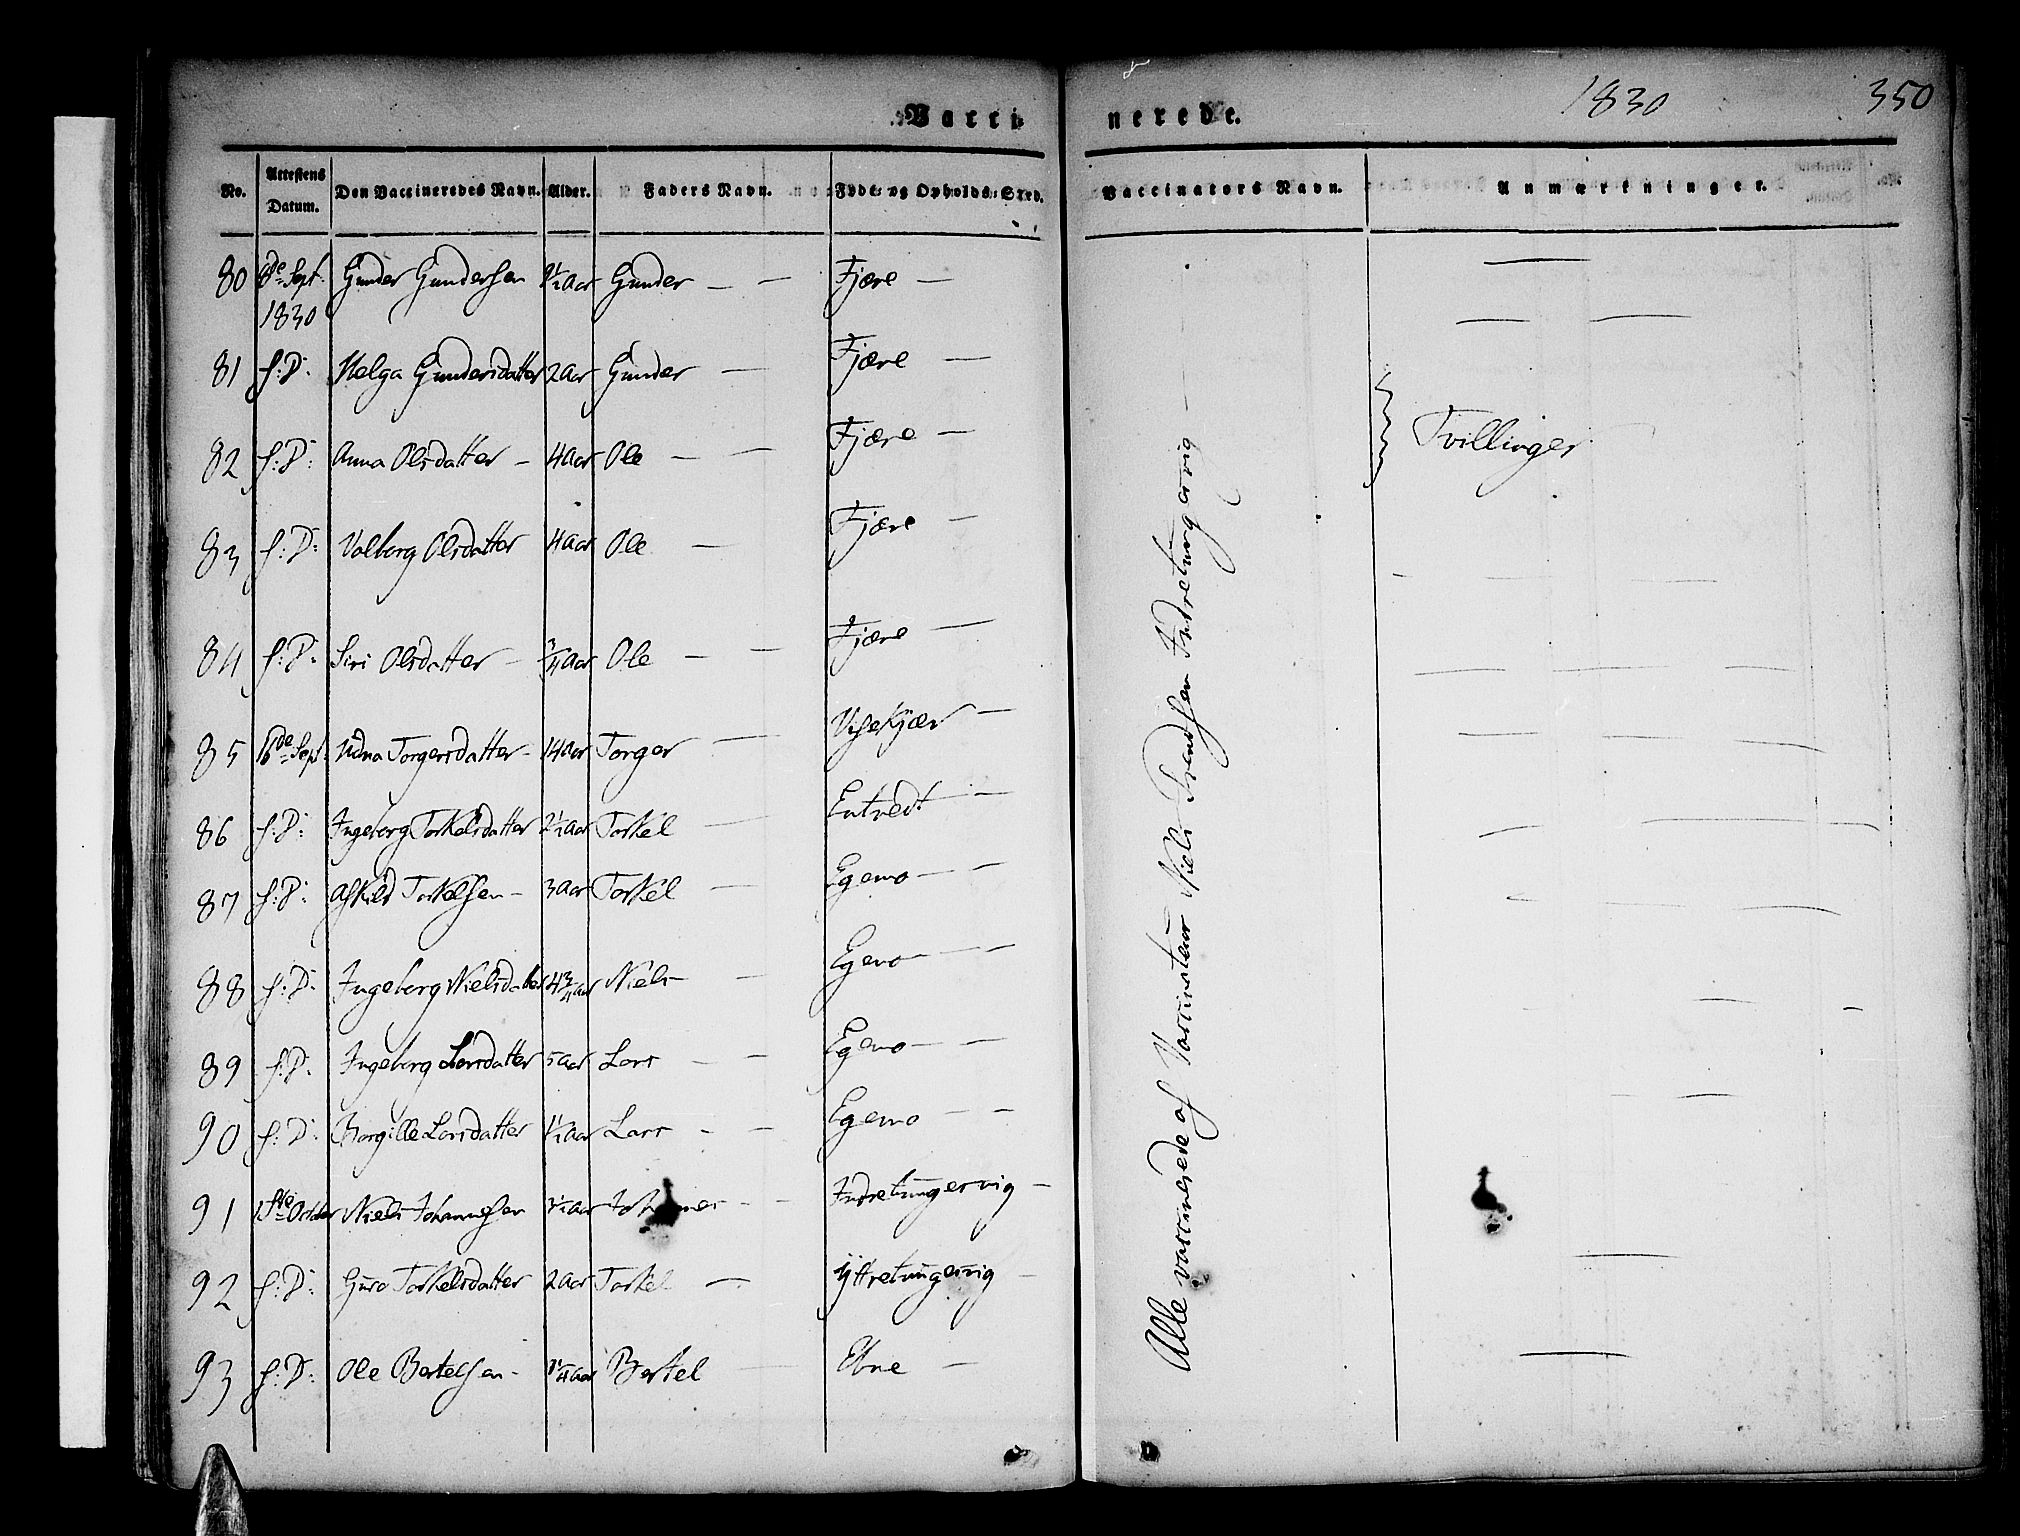 1830 350
Vacci nerede.
No. Attestens Datum. Den Vaccineredes Navn. Alder. Faders Navn. Føde- og Opholds-Sted. Vaccinators Navn. Anmærkninger.
80 8de Sept. 1830 Gunder Gundersen ½ Aar Gunder — — Fjære —
81 s: D: Helga Gundersdatter 2 Aar Gunder — Fjære —
82 s: D: Anna Olsdatter — 4 Aar Ole — — Fjære — Tvillinger
83 s: D: Valborg Olsdatter 4 Aar Ole — Fjære —
84 s: D: Siri Olsdatter — ¾ Aar Ole — — Fjære —
85 16de Sept. Torgersdatter — 14 Aar Torger —
86 s: D: Ingeborg Torkelsdatter 2½ Aar Torkel — Entvedt —
87 s: D: Torkelsen — 3 Aar Torkel — Egemo — —
88 s: D: Ingeborg Nielsdatter 4¾ Aar Niels — Egemo — —
89 s: D: Ingeborg Larsdatter 5 Aar Lars — — Egemo — —
90 s: D: Borgille Larsdatter 1½ Aar Lars — — Egemo — —
91 1ste Octbr Niels Johannesen ½ Aar Johannes — — Indretungervig —
92 s: D: Guro Torkelsdatter 2 Aar Torkel — Yttretungervig —
93 s: D: Ole Bertelsen — 1¼ Aar Bertel —
Alle vaccinerede af Vaccinateur Niels Trendsen Indretungervig —